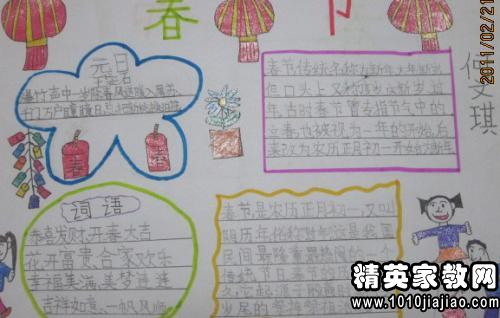 春 节
元日
王安石
爆竹声中一岁除春风送暖入屠苏
春节传统名称为新年大年新岁
但口头上又称度岁庆新岁过
年古时春节曾专指节气中的
立春也被视为一年的开始后
来改为农历正月初一开始为新年
何文琪
2011/02/21
春
春
词语
恭喜发财,开春大吉
花开富贵合家欢乐
幸福美满,美梦连连
吉祥如意,一帆风顺
春节是农历正月初一,又叫
阴历年俗称
国
民间最隆重最热闹的一个
传统节日
精英家教网
www.1010jiajiao.com